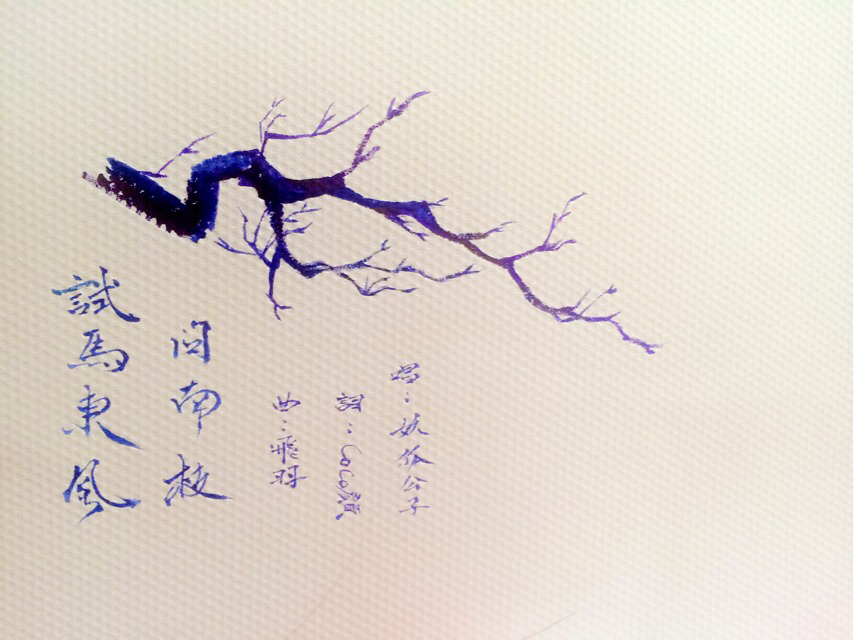 試馬東風
問南枝
曲：飛羽
詞：CoCo顏
唱：妖狐公子